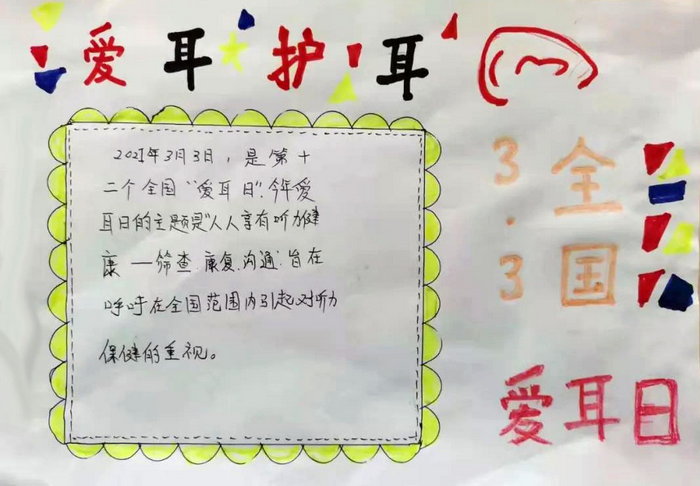 爱耳护耳
2021年3月3日，是第十
二个全国“爱耳日”，今年爱
耳日的主题是“人人享有听力健
康 — 筛查、康复、沟通”，旨在
呼吁在全国范围内引起对听力
保健的重视。
3.3
全国
爱耳日